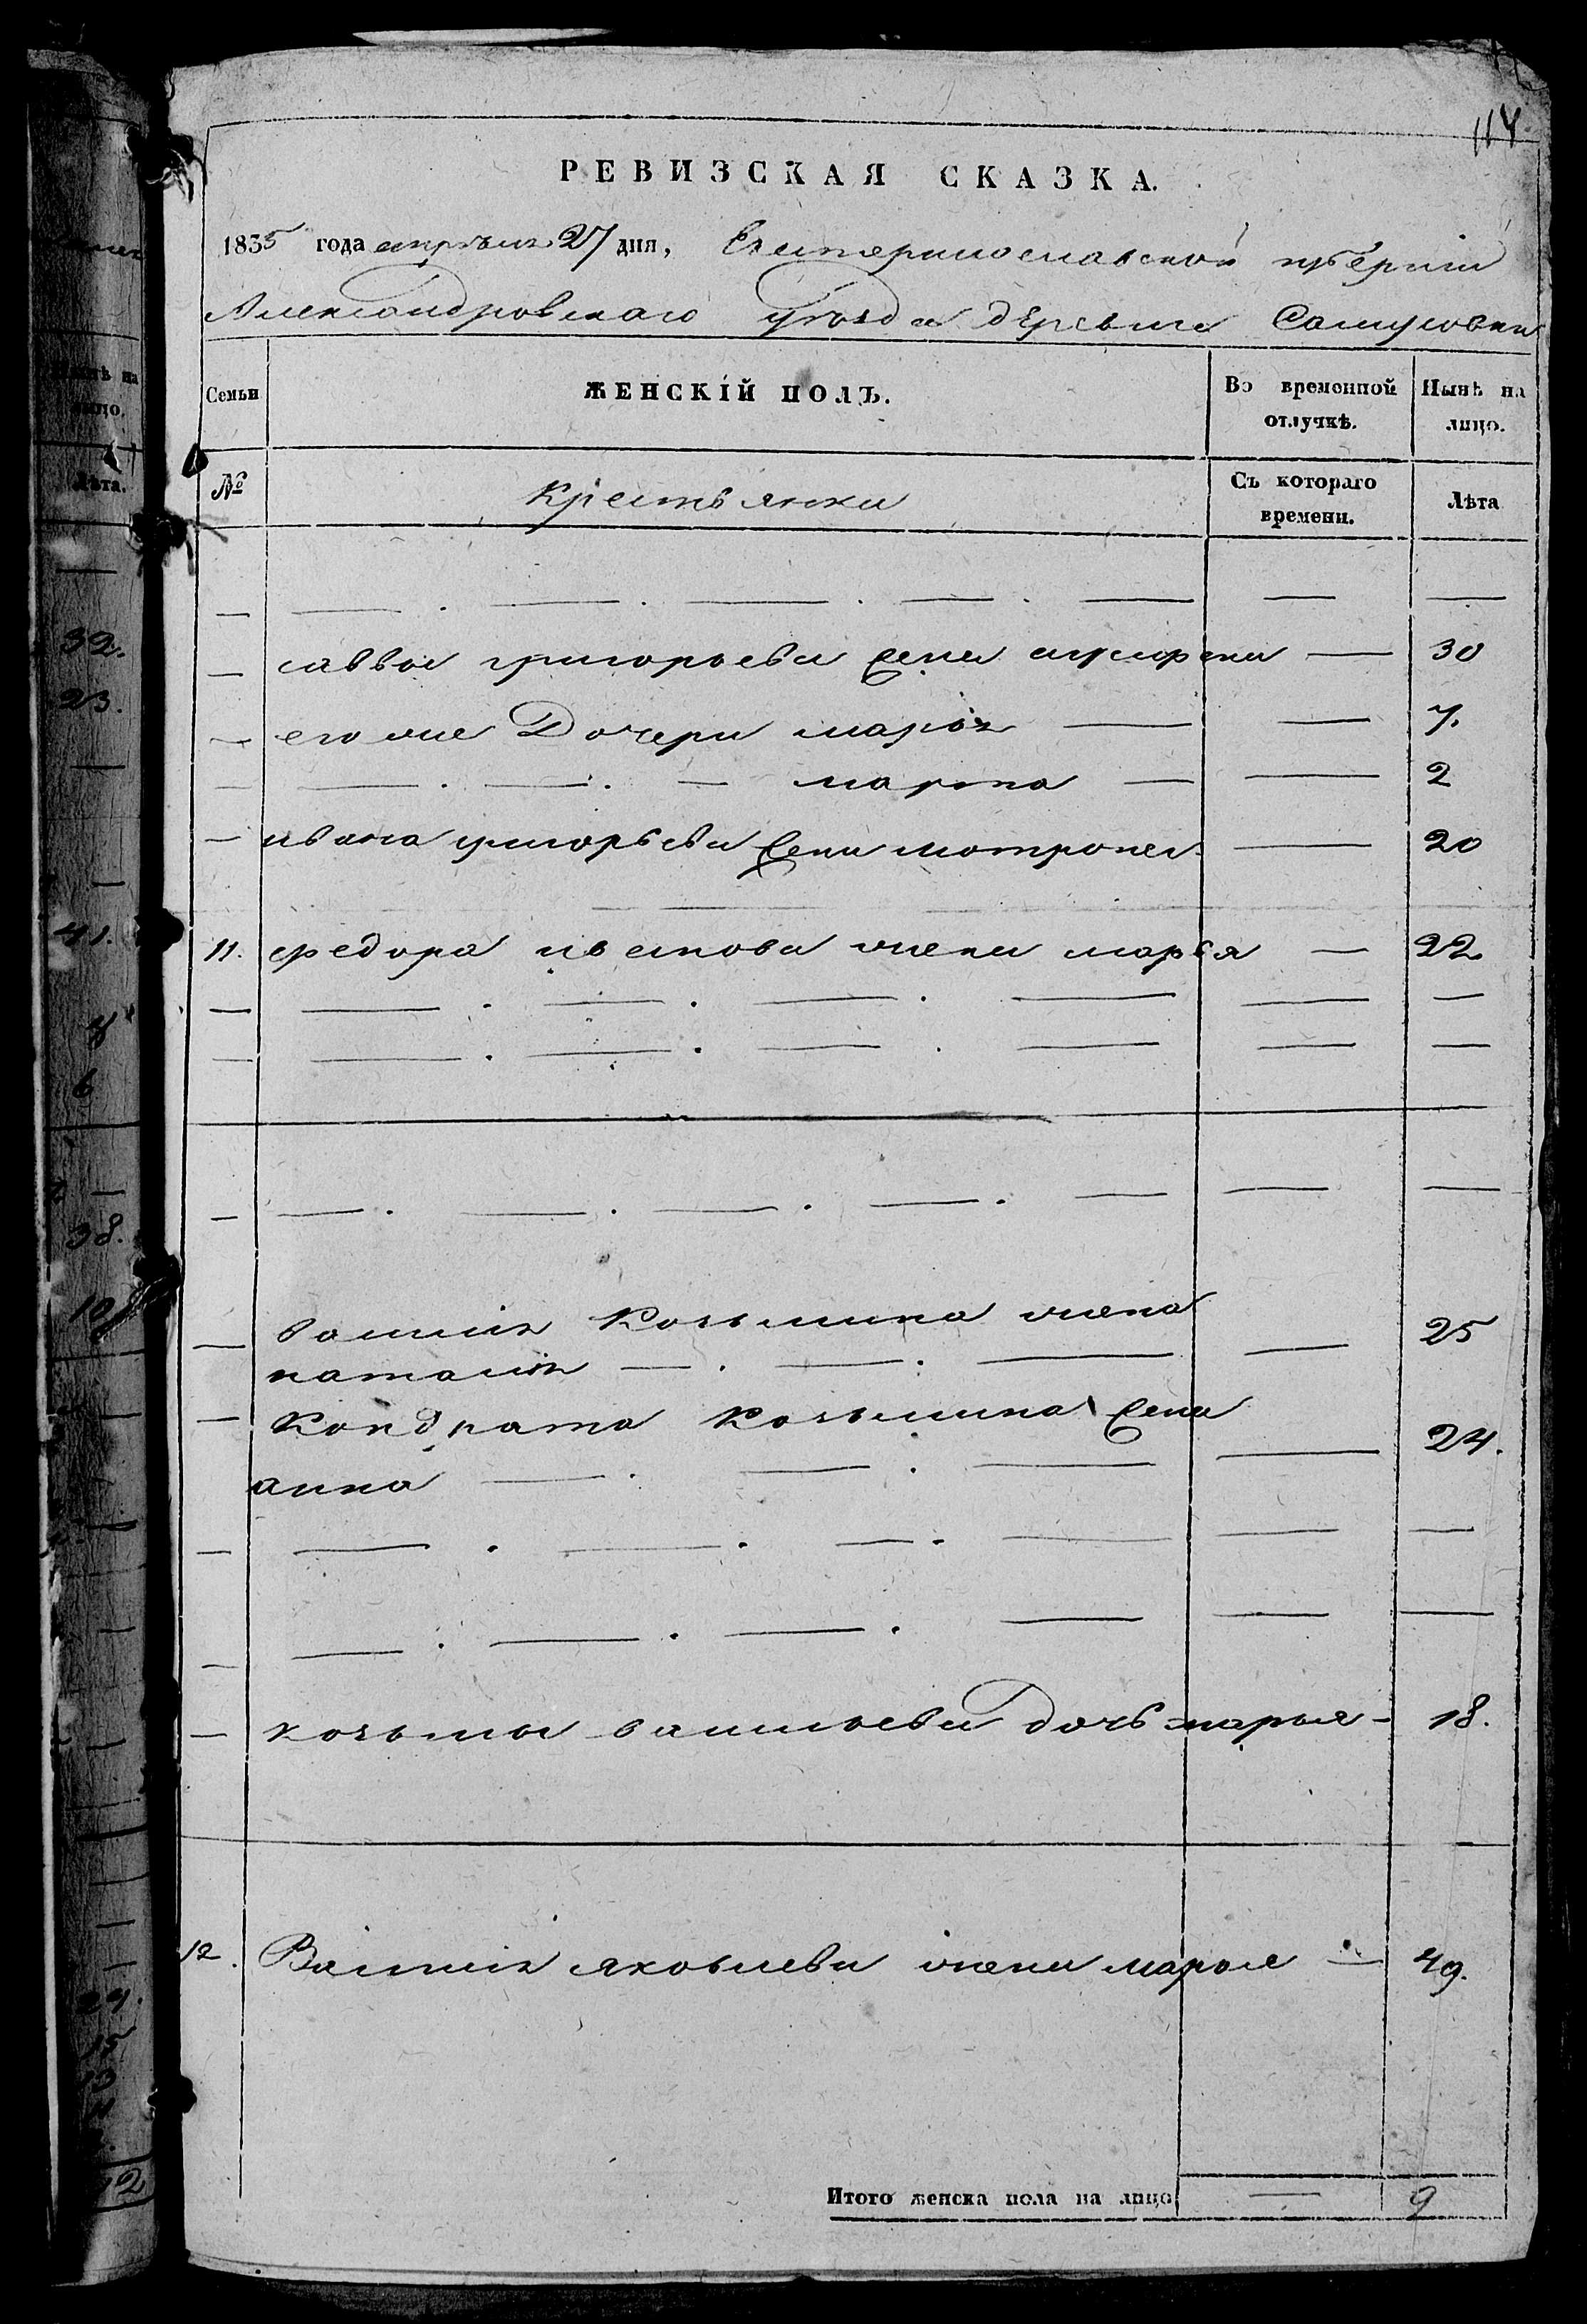 114
РЕВИЗСКАЯ СКАЗКА.
1835 года апреля 27 дня, Екатеринославской губернии
Александровского уезда деревни
Семьи
ЖЕНСКІЙ ПОЛЪ.
Во временной отлучкѣ.
Нынѣ на лицо.
№
Крестьянки
Съ котораго времени.
Лѣта
саввы григорьева жена — 30
его же Дочери марія — — 7.
— . — . — марѳа — — 2
— ивана григорьева жена мотрона — 20
11. федора жена марья — 22
василия Козьмина жена
наталия — . — . — — 25
— Кондрата Козьмина жена
анна — . — . — — 24.
— козьмы васильева дочь марья - 18.
12. Василия яковлева жена марья — 49.
Итого женска пола на лицо — 9
Нынѣ на лицо.
Лѣта.
32.
23.
41.
6
38.